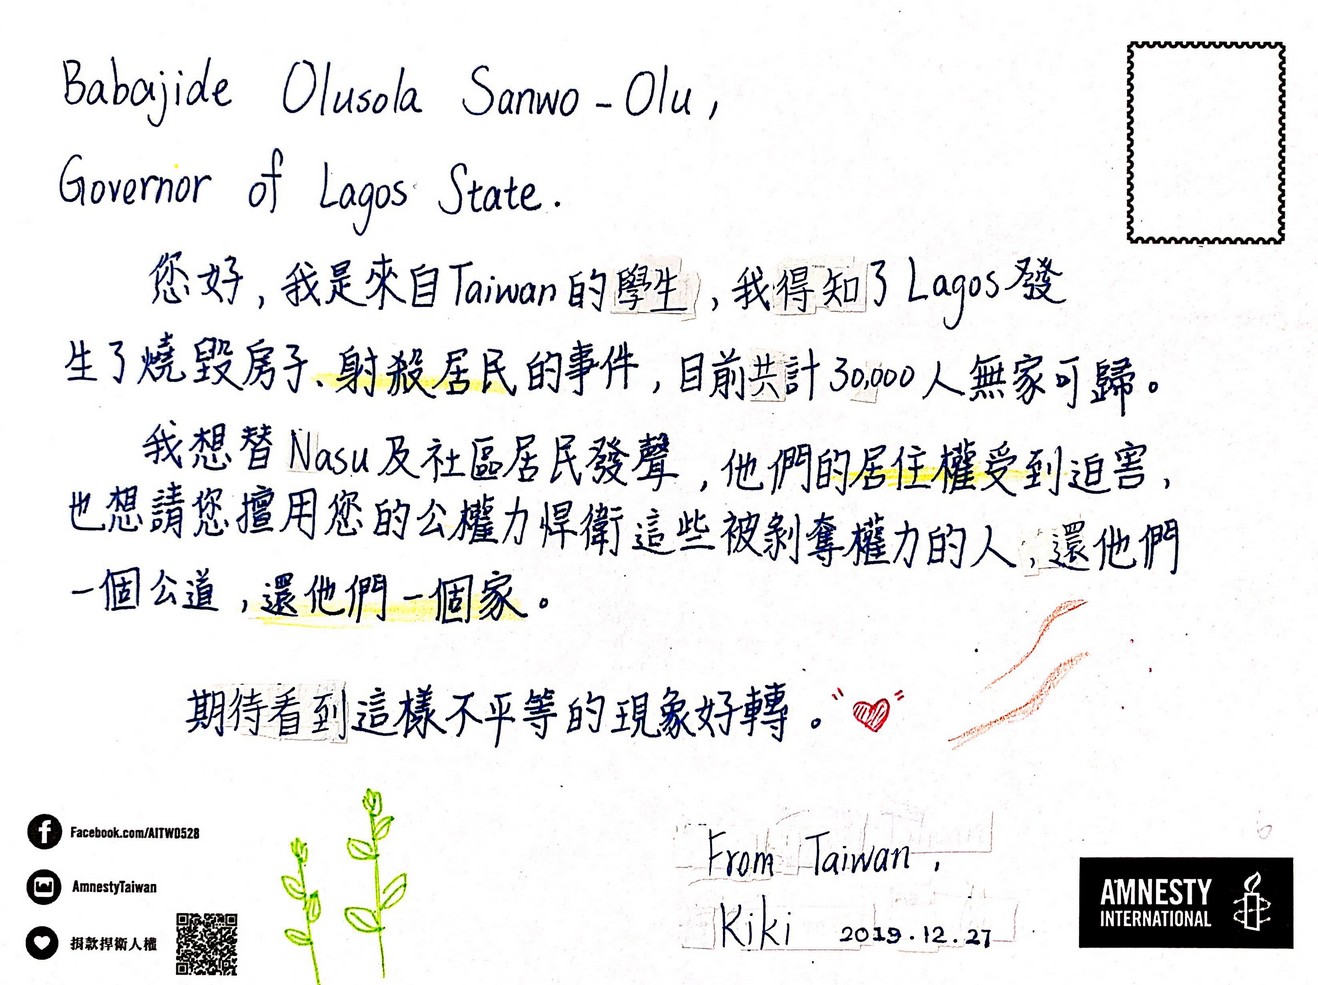 Babajide Olusola Sanwo-Olu,
Governor of Lagos State.
您好，我是來自Taiwan的學生，我得知了Lagos發
生了燒毀房子、射殺居民的事件，目前共計30,000人無家可歸。
我想替Nasu及社區居民發聲，他們的居住權受到迫害，
也想請您擅用您的公權力悍衛這些被剝奪權力的人，還他們
一個公道，還他們一個家。
期待看到這樣不平等的現象好轉。
From Taiwan,
Kiki 2019.12.27
Facebook.com/AITWD528
AmnestyTaiwan
捐款捍衛人權
AMNESTY
INTERNATIONAL